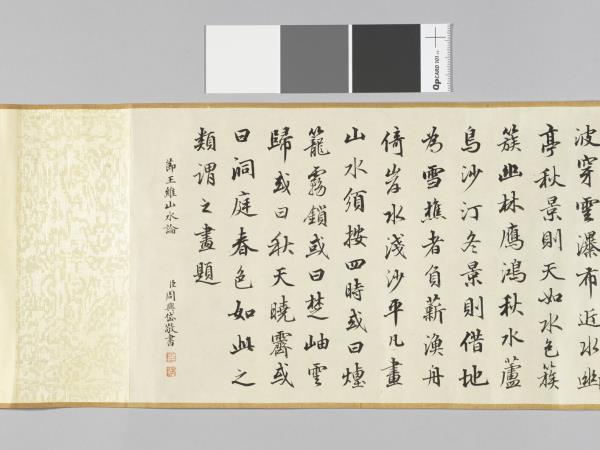 波穿雲瀑布近水幽
亭秋景則天如水色簇
簇幽林鴈鴻秋水蘆
鳥沙汀冬景則借地
為雪樵者負薪漁舟
倚岸水淺沙平凡畫
山水須按四時或曰煙
籠霧鎖或曰楚岫雲
歸或曰秋天曉霽或
曰洞庭春色如此之
類謂之畫題
節王維山水論
臣周興岱敬書
QPCARD 101